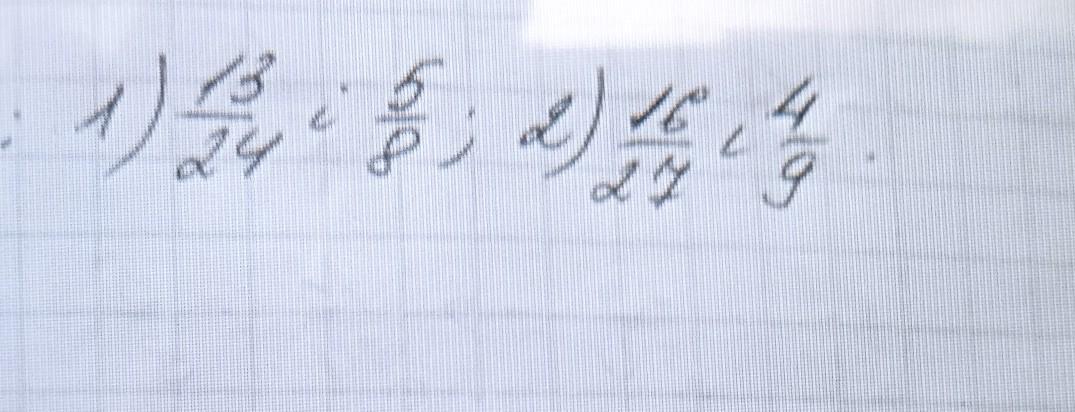 : 1) 13/24 і 5/8; 2) 16/27 і 4/9.